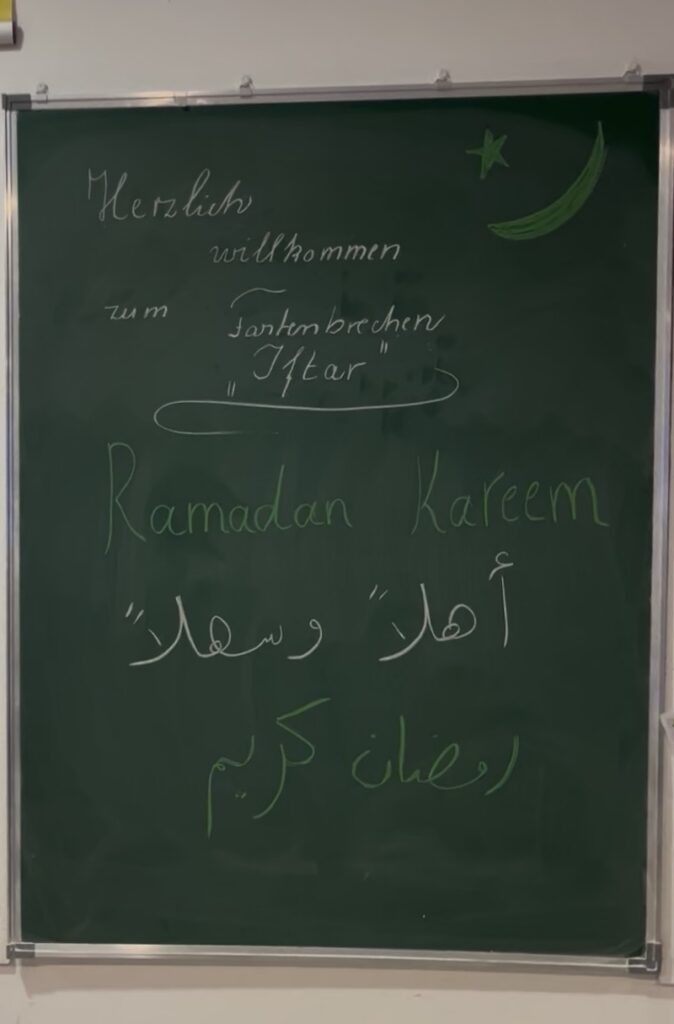 Herzlich
willkommen
zum Fastenbrechen
"Iftar"
Ramadan Kareem
أهلاً وسهلاً
رمضان كريم